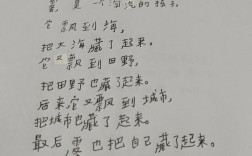 雾是一个淘气的孩子
它飘到海,
把大海藏了起来。
它又飘到田野,
把田野也藏了起来。
后来它又飘到城市,
把城市也藏了起来。
最后雾也把自己藏了起来。